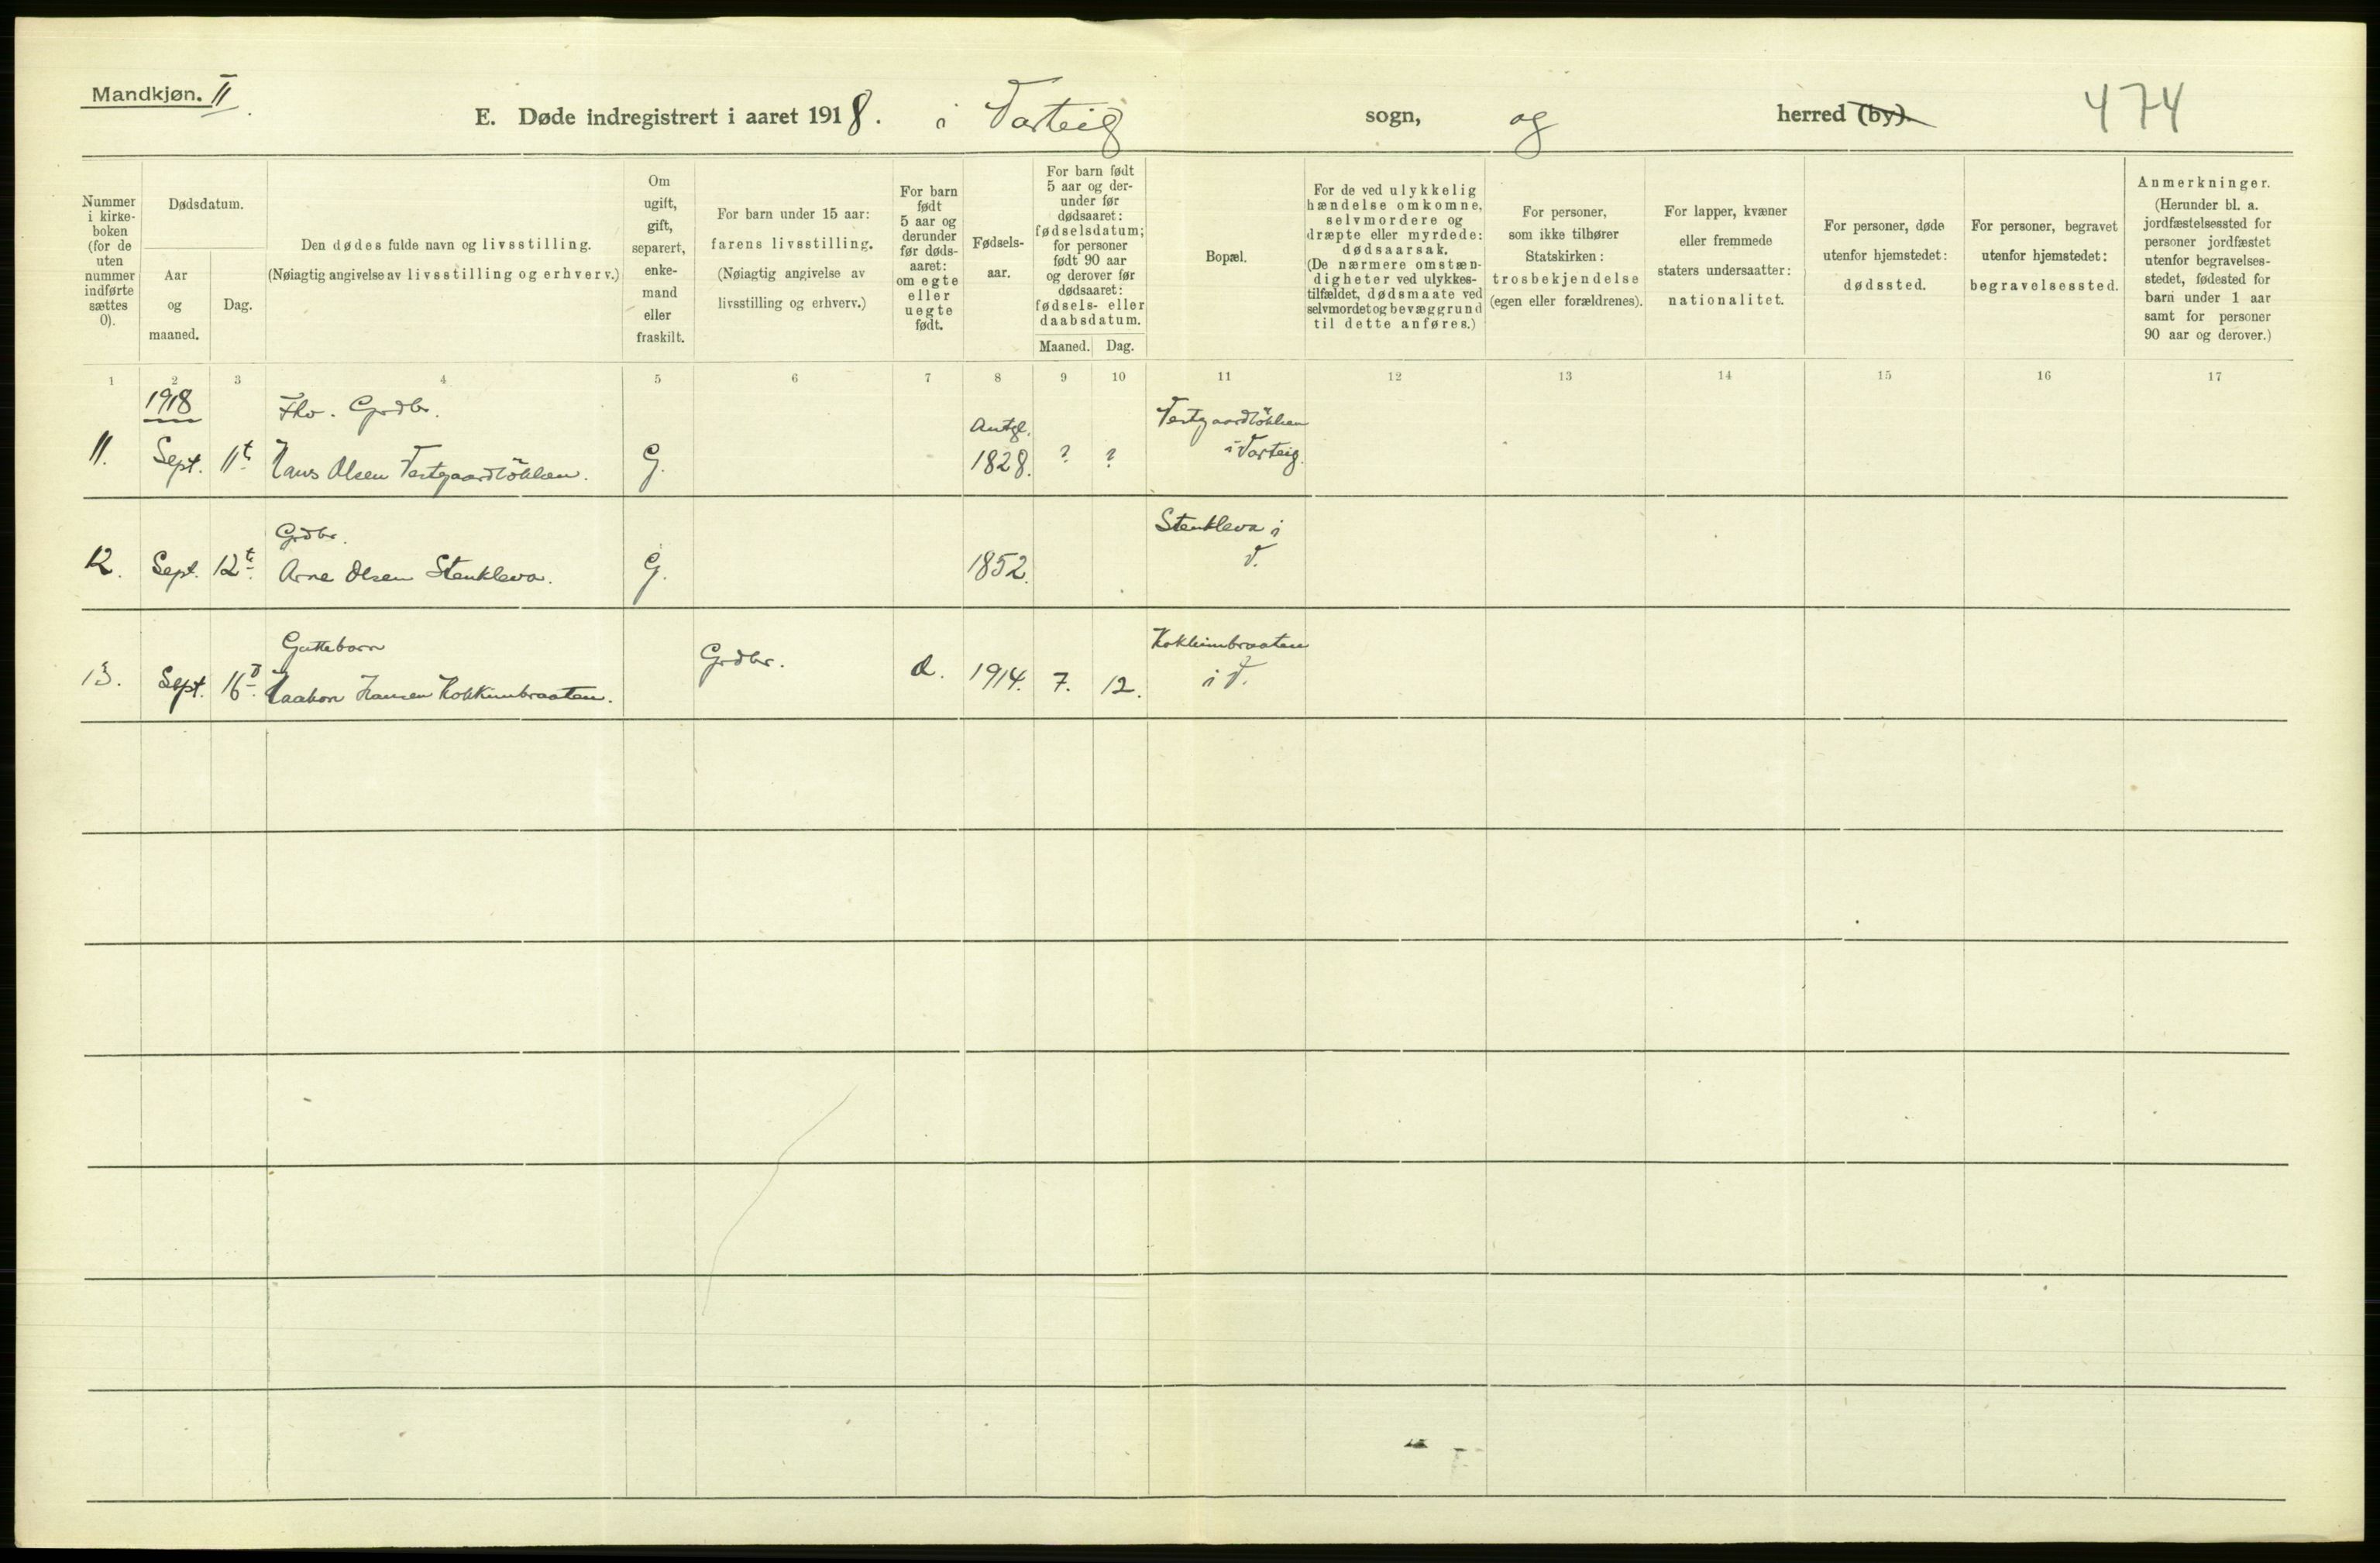 Mandkjøn. II.
E. Døde indregistrert i aaret 1918. i Varteig sogn, og herred (by).
474
Nummer i kirke-boken (for de uten nummer indførte sættes 0).
Dødsdatum.
Aar og maaned.
Dag.
Den dødes fulde navn og livsstilling.
(Nøiagtig angivelse av livsstilling og erhverv.)
Om ugift, gift, separert, enke-mand eller fraskilt.
For barn under 15 aar: farens livsstilling.
(Nøiagtig angivelse av livsstilling og erhverv.)
For barn født 5 aar og derunder før døds-aaret: om egte eller uegte født.
Fødsels-aar.
For barn født 5 aar og der-under før dødsaaret: fødselsdatum; for personer født 90 aar og derover før dødsaaret: fødsels- eller daabsdatum.
Maaned.
Dag.
Bopæl.
For de ved ulykkelig hændelse omkomne, selvmordere og dræpte eller myrdede: dødsaarsak.
(De nærmere omstæn-digheter ved ulykkes-tilfældet, dødsmaate ved selvmordet og bevæggrund til dette anføres.)
For personer, som ikke tilhører Statskirken: trosbekjendelse (egen eller forældrenes).
For lapper, kvæner eller fremmede staters undersaatter: nationalitet.
For personer, døde utenfor hjemstedet: dødssted.
For personer, begravet utenfor hjemstedet: begravelsessted.
Anmerkninger.
(Herunder bl. a. jordfæstelsessted for personer jordfæstet utenfor begravelses-stedet, fødested for barn under 1 aar samt for personer 90 aar og derover.)
1 2 3 4 5 6 7 8 9 10 11 12 13 14 15 16 17
1918
Fhv. Grdbr.
Antgl.
11. Sept. 11t Hans Olsen G. 1828. ? ? i Varteig.
Grdbr.
Stenkleva i
12. Sept. 12t. Arne Olsen Stenkleva. G. 1852. V.
Guttebarn
13. Sept. 16d. Haakon Hansen Kokkimbraaten. Grdbr. 1914. 7. 12. Kokkimbraaten
i V.